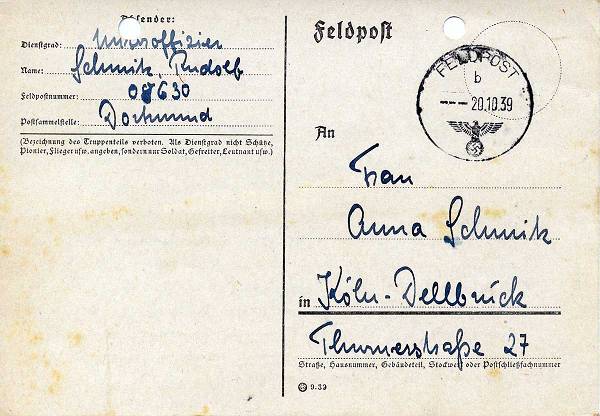 Absender:
Dienstgrad: Unteroffizier
Name: Schmitz, Rudolf
Feldpostnummer: 08630
Postsammelstelle: Dortmund
(Bezeichnung des Truppenteils verboten. Als Dienstgrad nicht Schütze,
Pionier, Flieger usw. angeben, sondern nur Soldat, Gefreiter, Leutnant usw.)
Feldpost
FELDPOST
b
--- 20.10.39
An
Frau
Anna Schmitz
in Köln-Dellbrück
Thurnerstraße 27
Straße, Hausnummer, Gebäudeteil, Stockwerk oder Postschließfachnummer
9.39